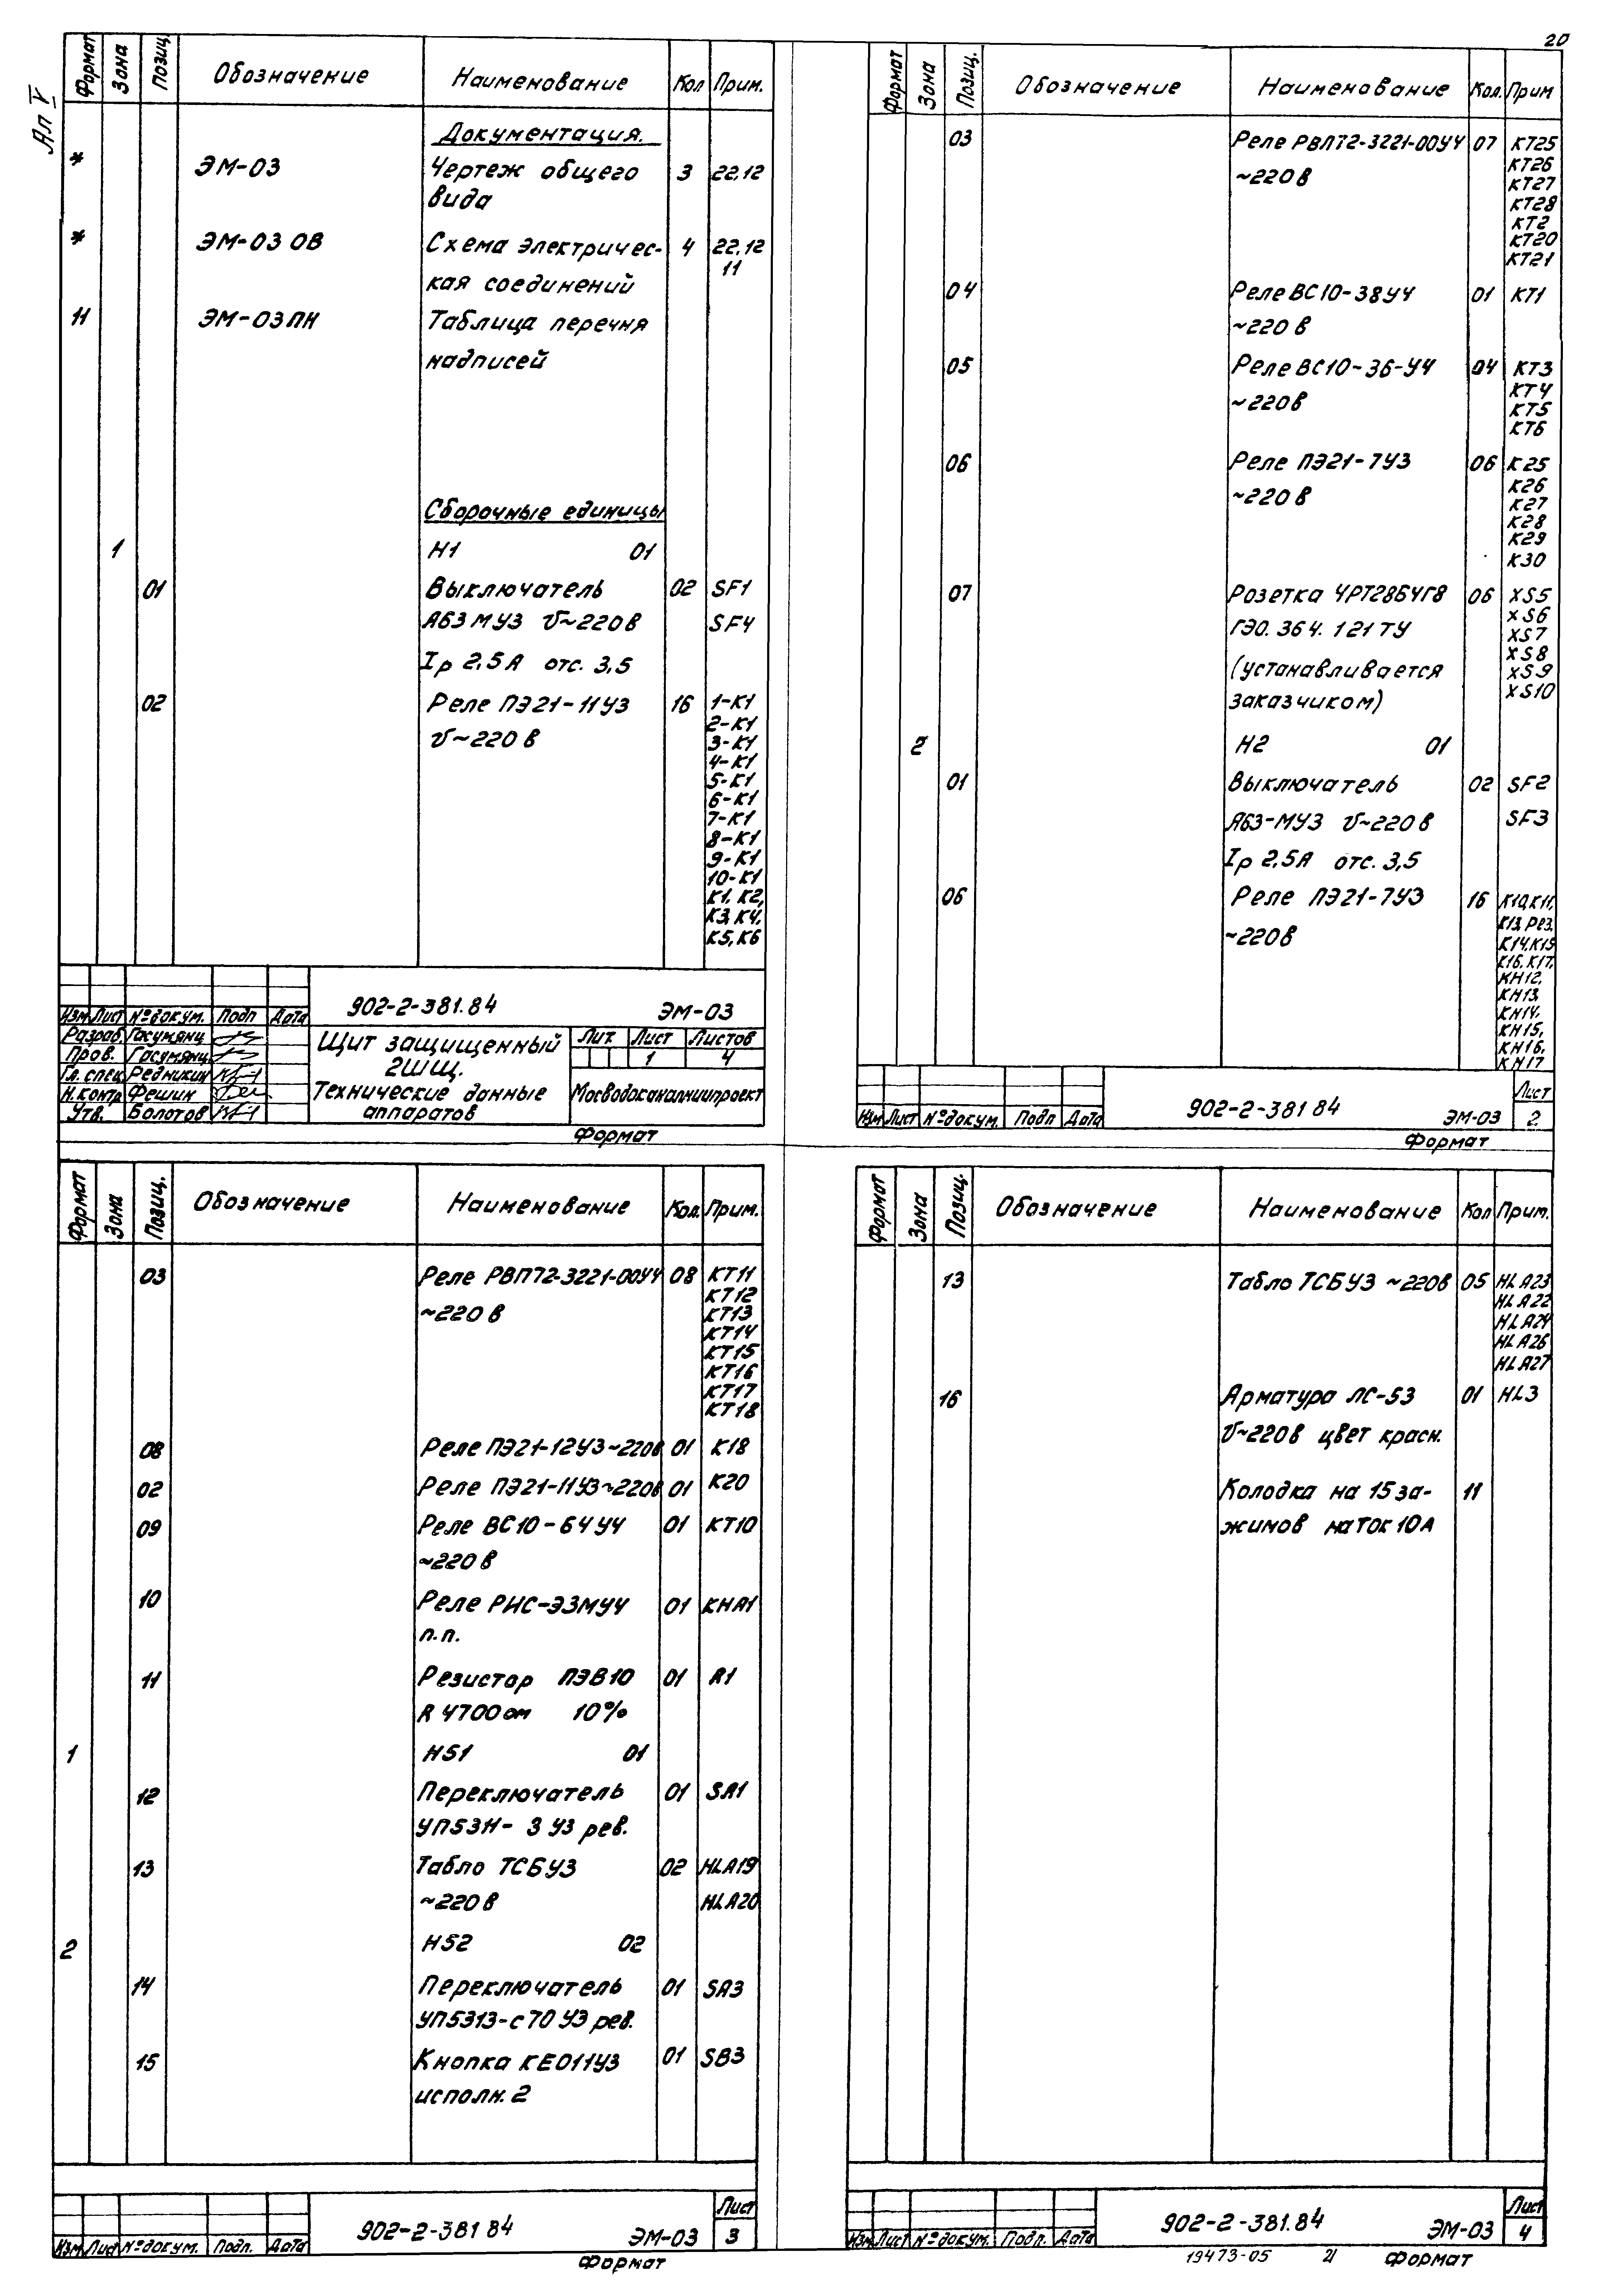 20
Ал V
Формат Зона Позиц. Обозначение Наименование Кол Прим.
Документация.
* ЭМ-03 Чертеж общего 3 22,12
вида
* ЭМ-03 ОВ Схема электричес- 4 22,12
11
кая соединений
11 ЭМ-03ПН Таблица перечня
надписей
Сборочные единицы
1 Н1 01
01 Выключатель 02 SF1
АБ3МУ3 U~220в SF4
Iр 2,5А отс. 3,5
02 Реле ПЭ21-11У3 16 1-К1
2-К1
U~220в 3-К1
4-К1
5-К1
6-К1
7-К1
8-К1
9-К1
10-К1
К1, К2,
К3, К4,
К5, К6
902-2-381.84 ЭМ-03
Изм. Лист №докум. Подп Дата
Разраб. Гасумянц
Пров. Гасумянц
Гл. спец. Редникин
Н.контр. Фешин
Утв. Болотов
Щит защищенный
2ШЩ.
Технические данные
аппаратов
Лит. Лист Листов
1 4
Мосводоканалниипроект
Формат
Формат Зона Позиц. Обозначение Наименование Кол. Прим
03 Реле РВП72-3221-00У4 07 КТ25
КТ26
~220в КТ27
КТ28
КТ2
КТ20
КТ21
04 Реле ВС10-38У4 01 КТ1
~220в
05 Реле ВС10-36-У4 04 КТ3
КТ4
~220в КТ5
КТ6
06 Реле ПЭ21-7У3 06 К25
К26
~220в К27
К28
К29
К30
07 Розетка ЧРТ28Б4Г8 06 XS5
XS6
ГЭ0. 364. 121 ТУ XS7
XS8
(устанавливается XS9
заказчиком) XS10
2 Н2 01
01 Выключатель 02 SF2
АБ3-МУ3 U~220в SF3
Iр 2,5А отс. 3,5
06 Реле ПЭ21-7У3 16 К10,К11,
К13,рез,
~220в К14,К15
К16,К17,
КН12,
КН13
КН14,
КН15,
КН16,
КН17
Изм Лист №докум. Подп Дата 902-2-381 84 ЭМ-03 Лист
2
Формат
Формат Зона Позиц. Обозначение Наименование Кол. Прим.
03 Реле РВП72-3221-00У4 08 КТ11
КТ12
~220в КТ13
КТ14
КТ15
КТ16
КТ17
КТ18
08 Реле ПЭ21-12У3~220в 01 К18
02 Реле ПЭ21-11У3~220в 01 К20
09 Реле ВС10-64У4 01 КТ10
~220в
10 Реле РНС-Э3МУ4 01 КНА1
п.п.
11 Резистор ПЭВ10 01 R1
R 4700ом 10%
1 Н51 01
12 Переключатель 01 SA1
УП53Н- 3 У3 рев.
13 Табло ТСБУ3 02 HLA19
~220в HLA20
2 Н52 02
14 Переключатель 01 SA3
УП5313-с70 У3 рев.
15 Кнопка КЕ011У3 01 SB3
исполн. 2
Изм Лист №докум. Подп. Дата 902-2-381 84 ЭМ-03 Лист
3
Формат
Формат Зона Позиц. Обозначение Наименование Кол Прим.
13 Табло ТСБУ3 ~220в 05 HLA23
HLA22
HLA24
HLA26
HLA27
16 Арматура ЛС-53 01 HL3
U~220в цвет красн.
Колодка на 15 за- 11
жимов на ток 10А
Изм Лист №докум. Подп. Дата 902-2-381.84 ЭМ-03 Лист
4
19473-05 21 Формат